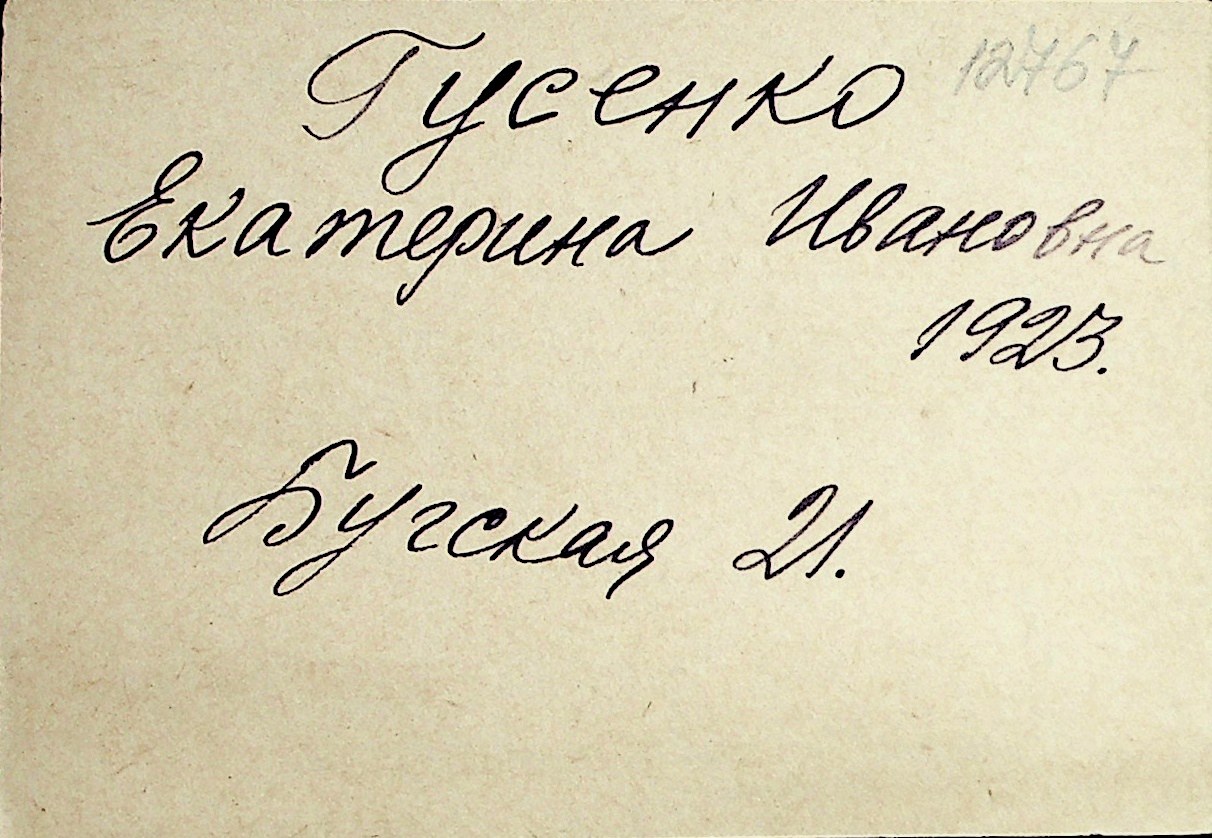 12767
Гусенко
Екатерина Ивановна
1923.
Бугская 21.